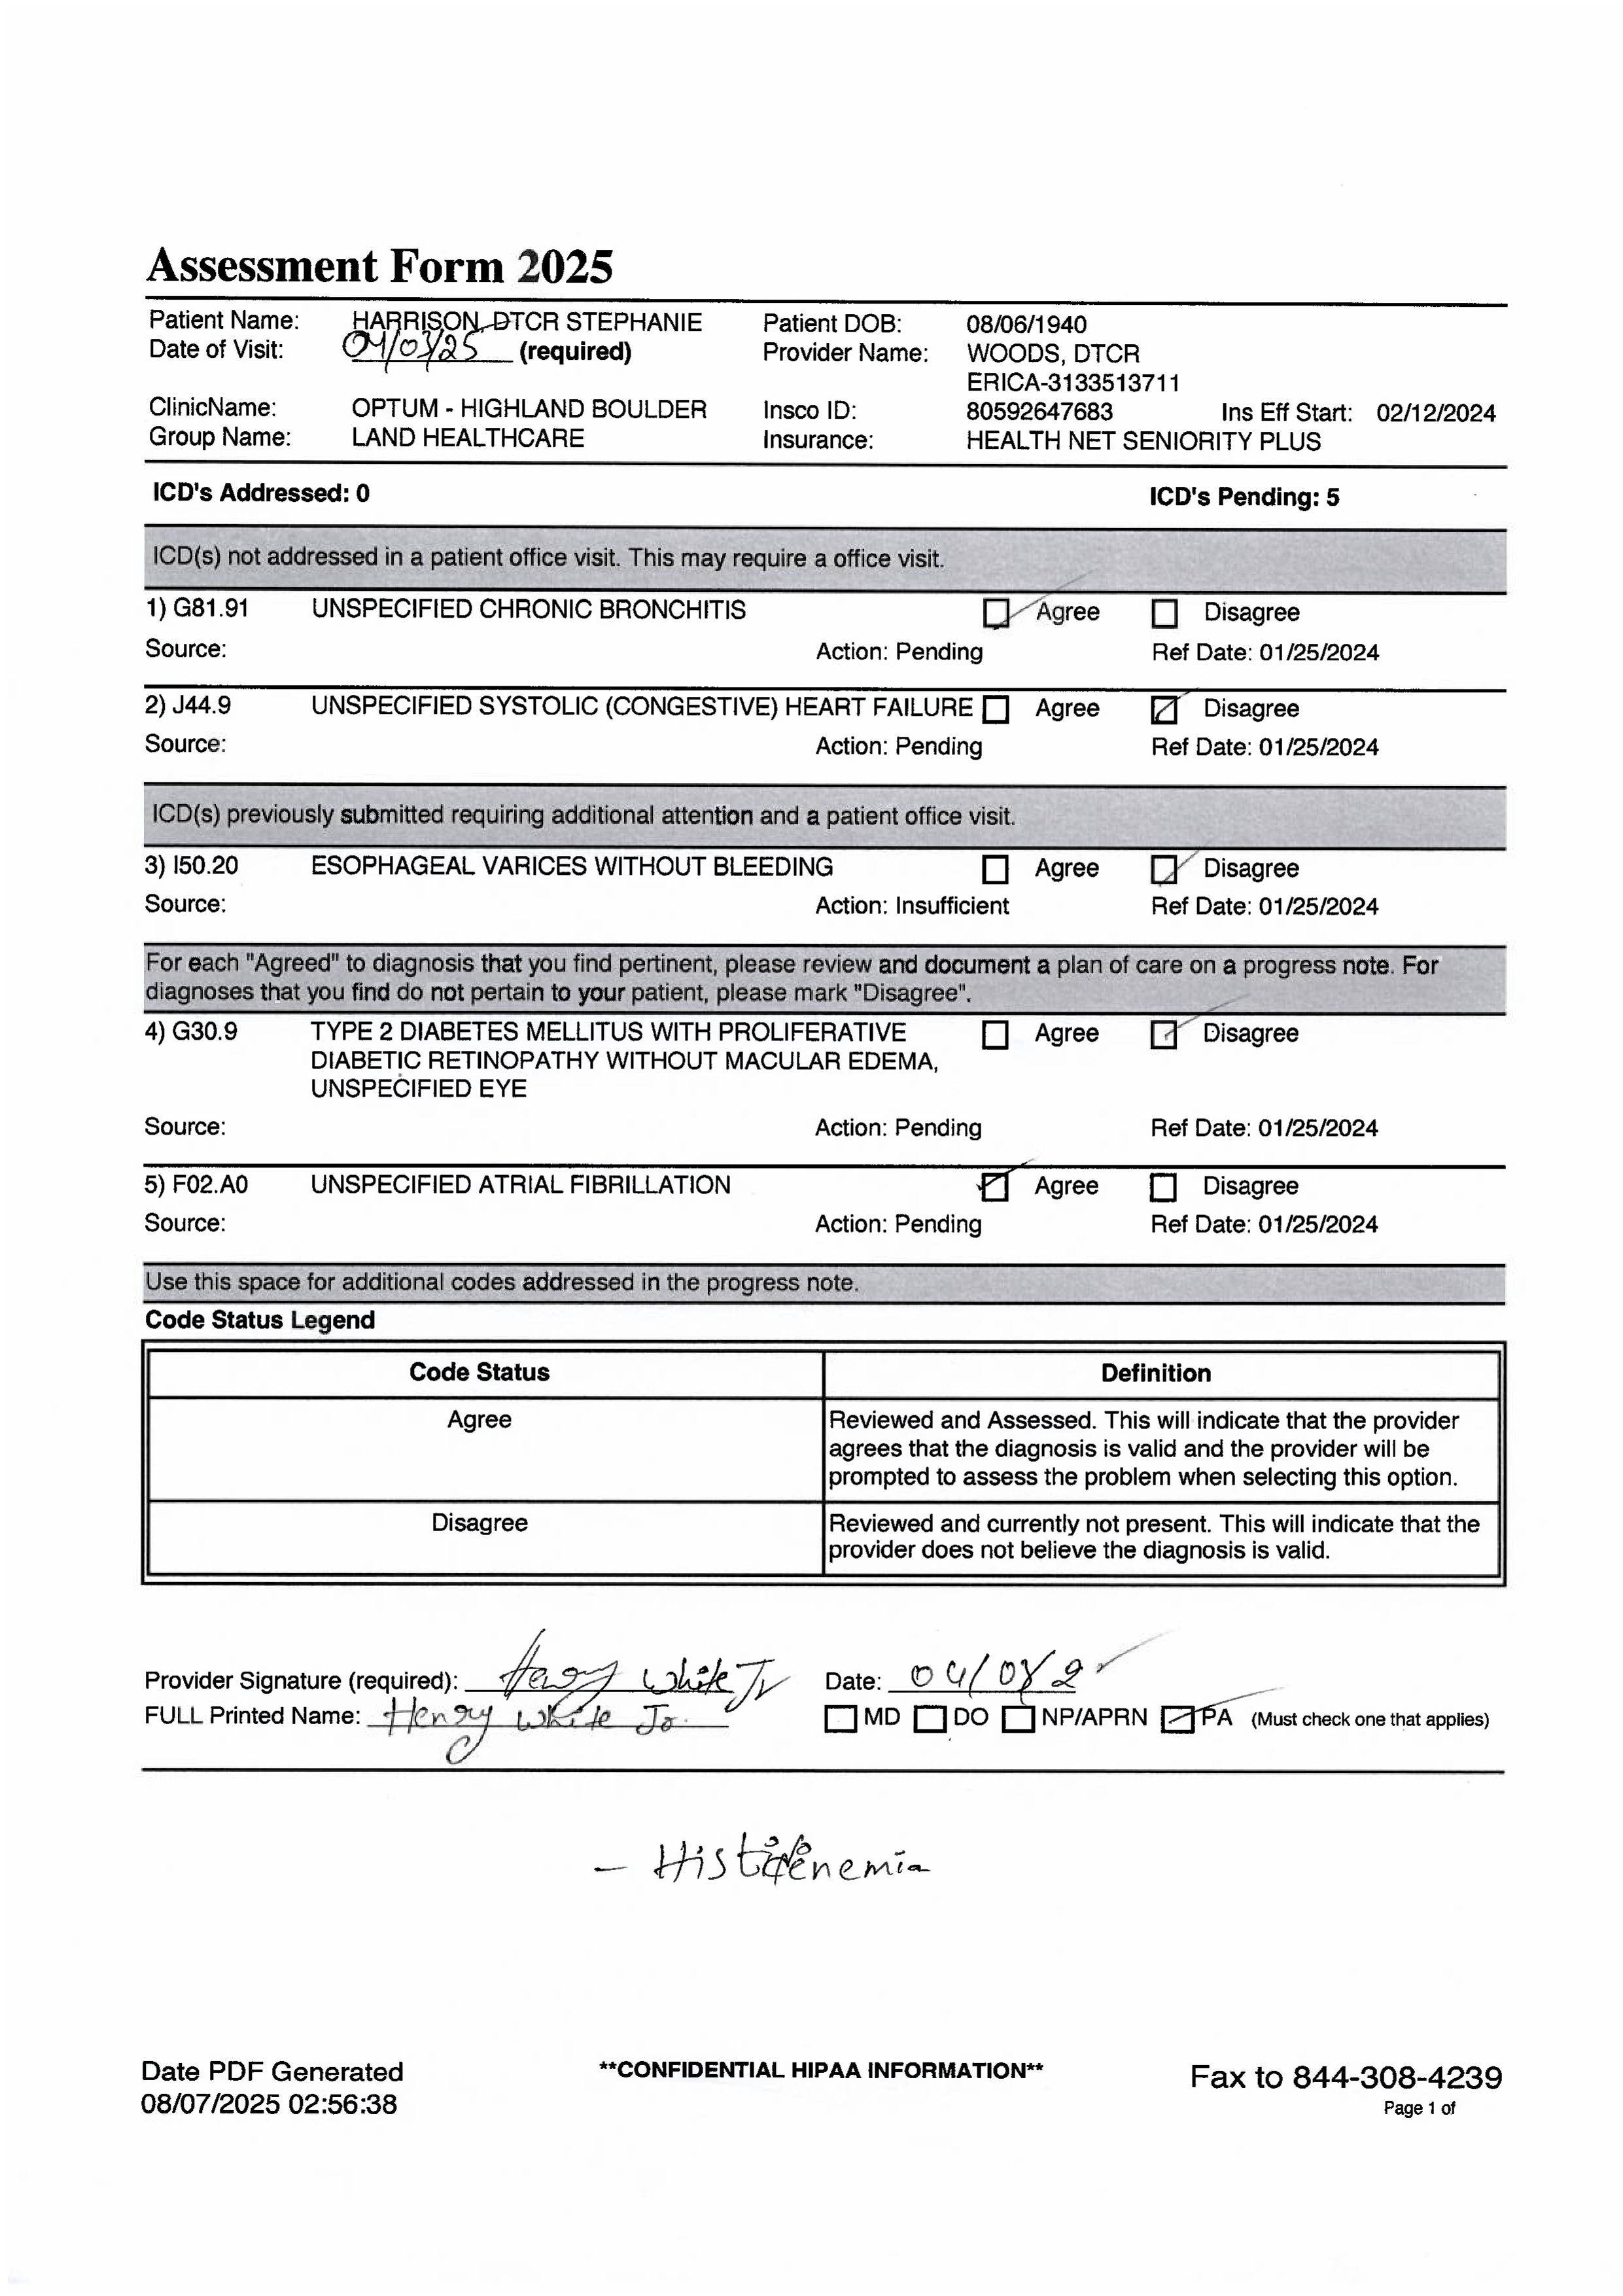 Assessment Form 2025
Patient Name: HARRISON, DTCR STEPHANIE Patient DOB: 08/06/1940
Date of Visit: 04/03/25 (required) Provider Name: WOODS, DTCR
ERICA-3133513711
ClinicName: OPTUM - HIGHLAND BOULDER Insco ID: 80592647683 Ins Eff Start: 02/12/2024
Group Name: LAND HEALTHCARE Insurance: HEALTH NET SENIORITY PLUS
ICD's Addressed: 0 ICD's Pending: 5
ICD(s) not addressed in a patient office visit. This may require a office visit.
1) G81.91 UNSPECIFIED CHRONIC BRONCHITIS Agree Disagree
Source: Action: Pending Ref Date: 01/25/2024
2) J44.9 UNSPECIFIED SYSTOLIC (CONGESTIVE) HEART FAILURE Agree Disagree
Source: Action: Pending Ref Date: 01/25/2024
ICD(s) previously submitted requiring additional attention and a patient office visit.
3) I50.20 ESOPHAGEAL VARICES WITHOUT BLEEDING Agree Disagree
Source: Action: Insufficient Ref Date: 01/25/2024
For each "Agreed" to diagnosis that you find pertinent, please review and document a plan of care on a progress note. For
diagnoses that you find do not pertain to your patient, please mark "Disagree".
4) G30.9 TYPE 2 DIABETES MELLITUS WITH PROLIFERATIVE Agree Disagree
DIABETIC RETINOPATHY WITHOUT MACULAR EDEMA,
UNSPECIFIED EYE
Source: Action: Pending Ref Date: 01/25/2024
5) F02.A0 UNSPECIFIED ATRIAL FIBRILLATION Agree Disagree
Source: Action: Pending Ref Date: 01/25/2024
Use this space for additional codes addressed in the progress note.
Code Status Legend
Code Status Definition
Agree Reviewed and Assessed. This will indicate that the provider
agrees that the diagnosis is valid and the provider will be
prompted to assess the problem when selecting this option.
Disagree Reviewed and currently not present. This will indicate that the
provider does not believe the diagnosis is valid.
Provider Signature (required): Henry White Jr Date:
FULL Printed Name: Henry White Jr. MD DO NP/APRN PA (Must check one that applies)
Date PDF Generated **CONFIDENTIAL HIPAA INFORMATION** Fax to 844-308-4239
08/07/2025 02:56:38 Page 1 of